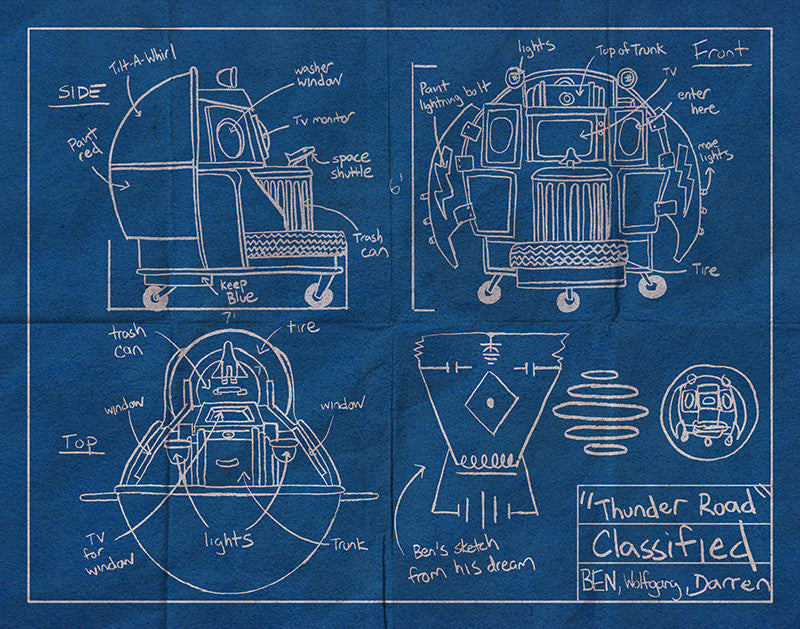 SIDE
Tilt-A-Whirl
washer
window
TV monitor
Paint
red
space
shuttle
Trash
can
keep
Blue
7'
lights
Top of Trunk
Front
TV
Paint
lightning bolt
enter
here
more
lights
6'
Tire
trash
can
tire
window
window
Top
TV
for
window
lights
Trunk
Ben's sketch
from his dream
"Thunder Road"
Classified
BEN, Wolfgang, Darren